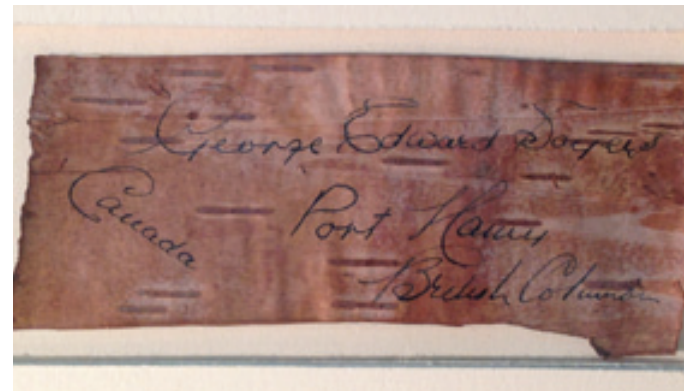 George Edward
Canada
Port Haney
British Columbia